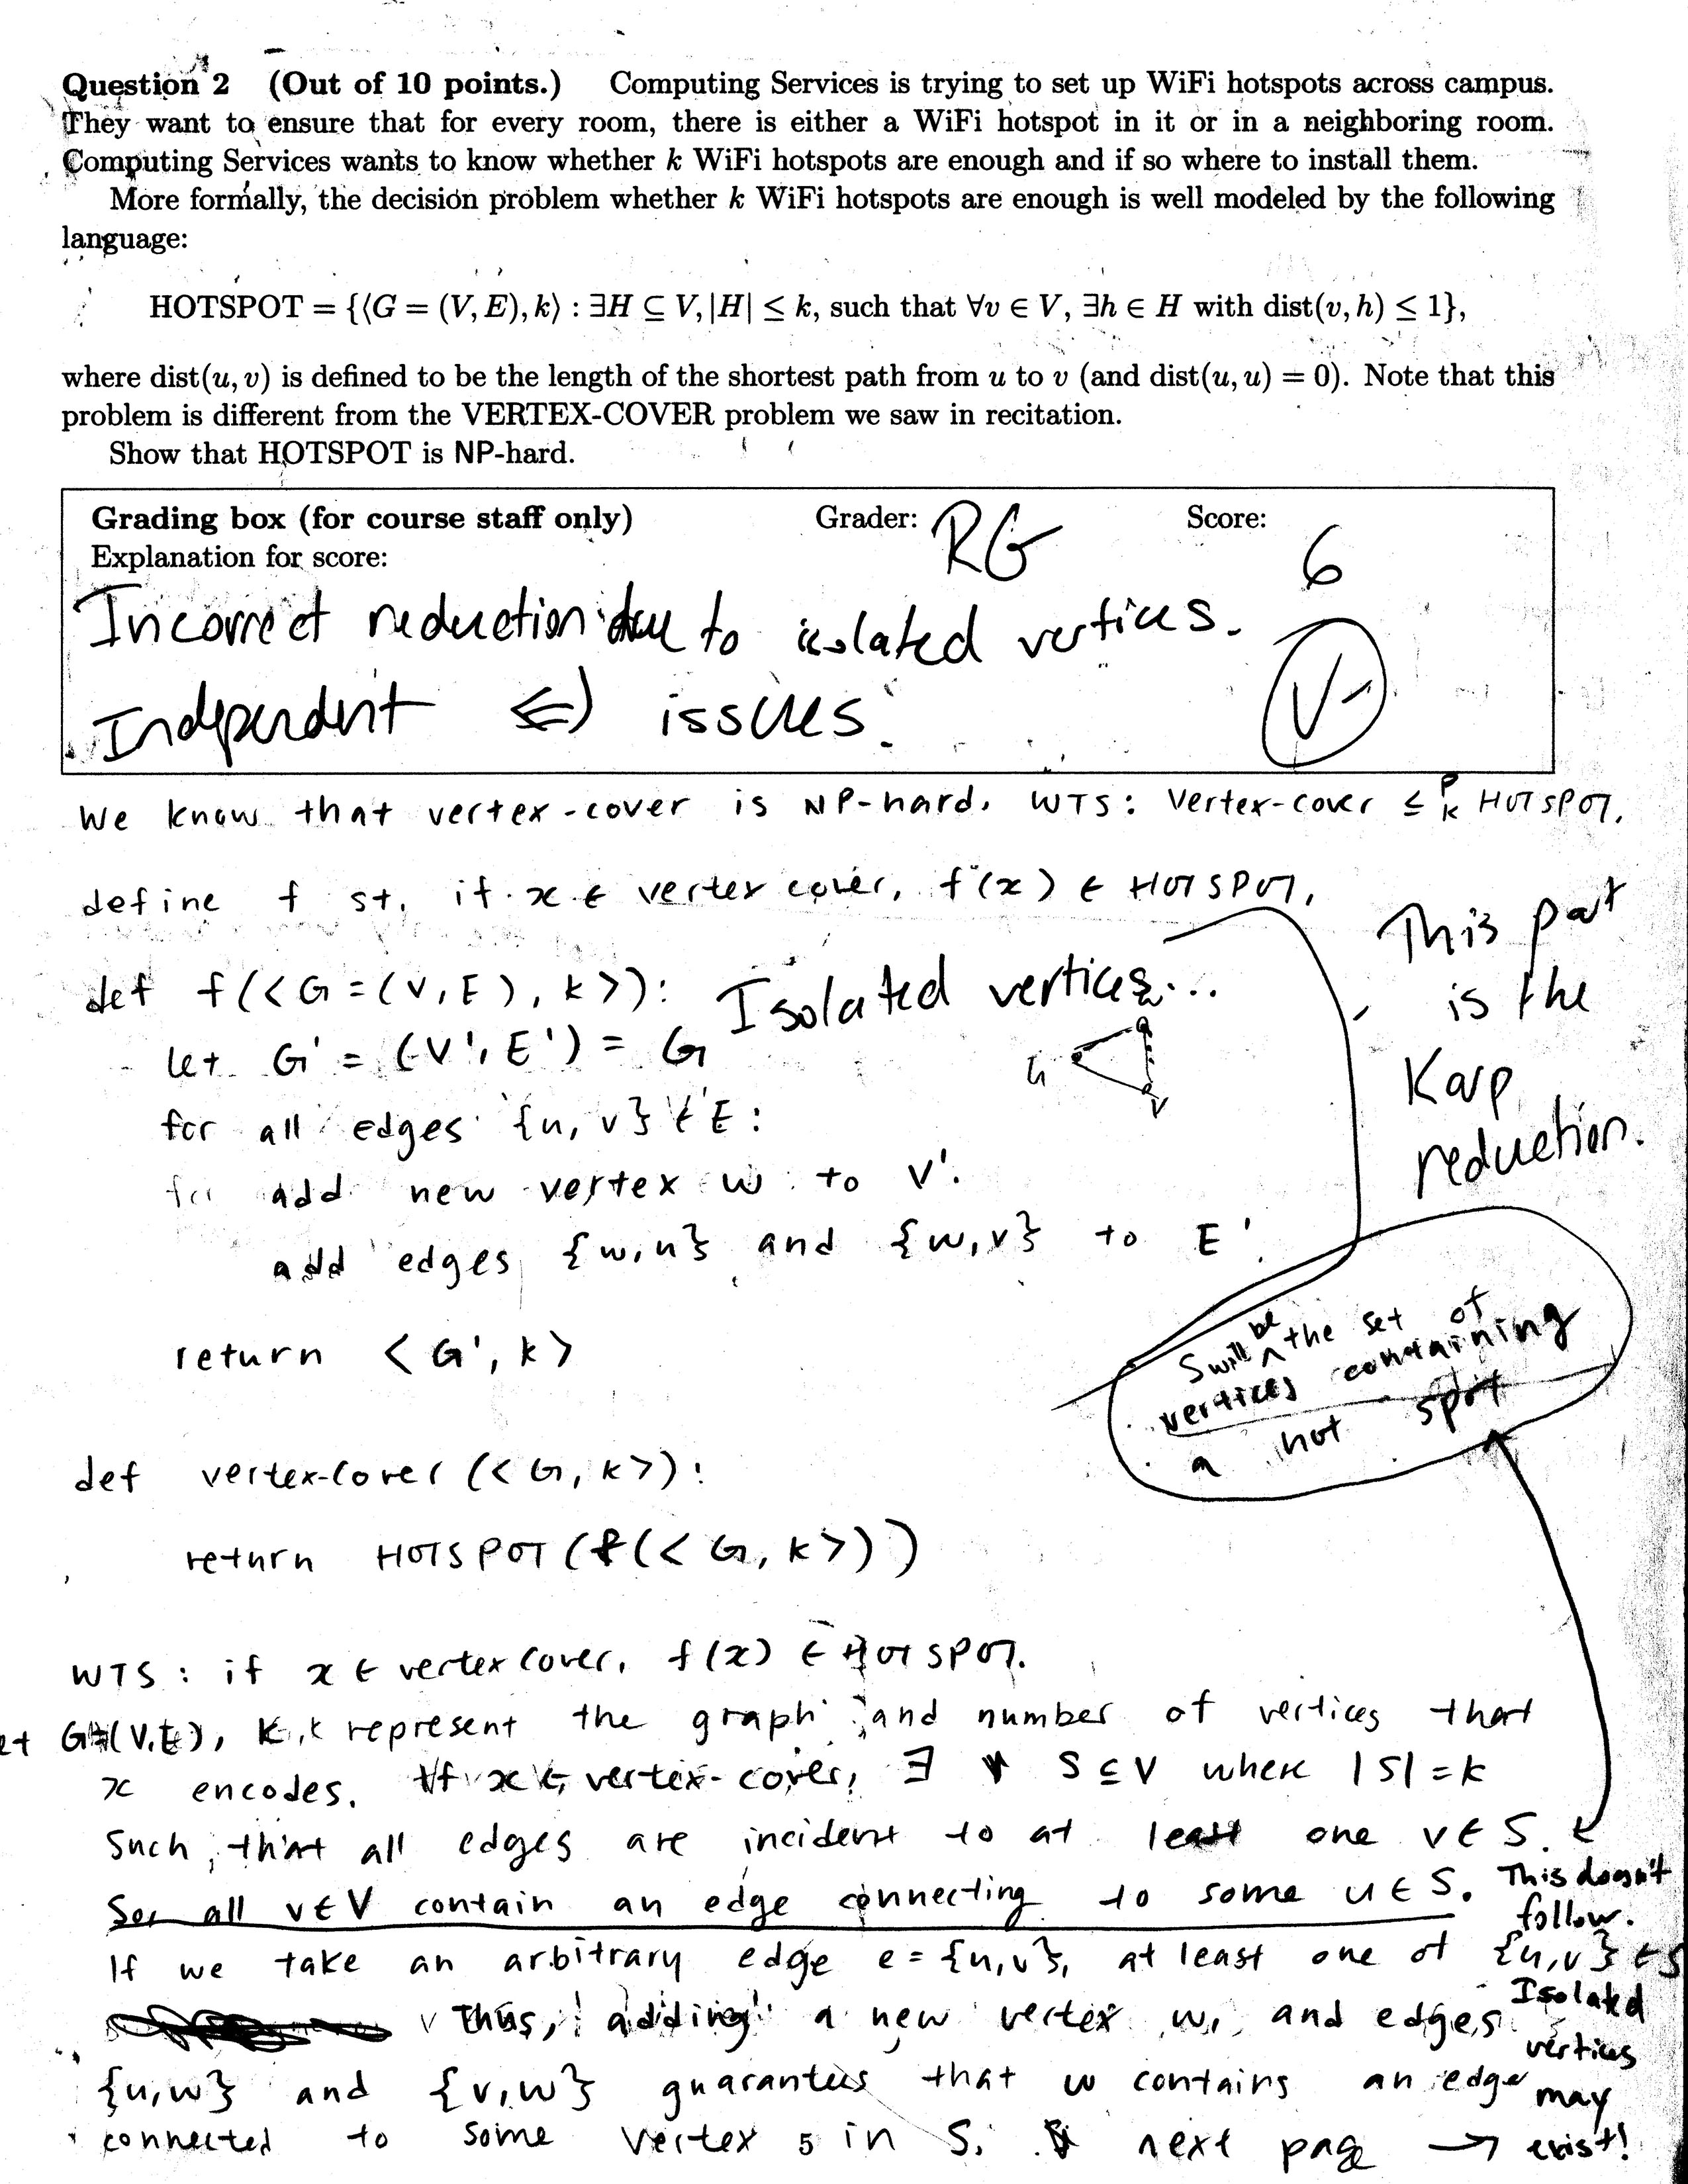 Question 2 (Out of 10 points.) Computing Services is trying to set up WiFi hotspots across campus.
They want to ensure that for every room, there is either a WiFi hotspot in it or in a neighboring room.
Computing Services wants to know whether k WiFi hotspots are enough and if so where to install them.
More formally, the decision problem whether k WiFi hotspots are enough is well modeled by the following
language:
HOTSPOT = {⟨G = (V, E), k⟩ : ∃H ⊆ V, |H| ≤ k, such that ∀v ∈ V, ∃h ∈ H with dist(v, h) ≤ 1},
where dist(u, v) is defined to be the length of the shortest path from u to v (and dist(u, u) = 0). Note that this
problem is different from the VERTEX-COVER problem we saw in recitation.
Show that HOTSPOT is NP-hard.
Grading box (for course staff only) Grader: RG Score: 6
Explanation for score:
Incorrect reduction due to isolated vertices.
Independent ⇐) issues.
V-
We know that vertex-cover is NP-hard. WTS: Vertex-cover ≤ᴾₖ HOTSPOT.
define f st. if x ∈ vertex cover, f(x) ∈ HOTSPOT.
This part
is the
Karp
reduction.
def f(<G = (V, E), k>): Isolated vertices...
let G' = (V', E') = G
G
v
for all edges {u, v} ∈ E:
add new vertex w to V'.
add edges {w, u} and {w, v} to E'.
return <G', k>
S will be the set of
vertices containing
a hot spot
def vertex-cover (<G, k>):
return HOTSPOT (f(<G, k>))
WTS: if x ∈ vertex cover, f(x) ∈ HOTSPOT.
G=(V,E), k represent the graph and number of vertices that
x encodes. If x ∈ vertex-cover, ∃ S ⊆ V where |S| = k
Such that all edges are incident to at least one v ∈ S.
So, all v ∈ V contain an edge connecting to some u ∈ S. This doesn't
follow.
If we take an arbitrary edge e = {u,v}, at least one of {u,v} ∈ S
Isolated
vertices
may
exist!
Thus, adding a new vertex w, and edges
{u,w} and {v,w} guarantees that w contains an edge
connected to some vertex in S. next page →
5